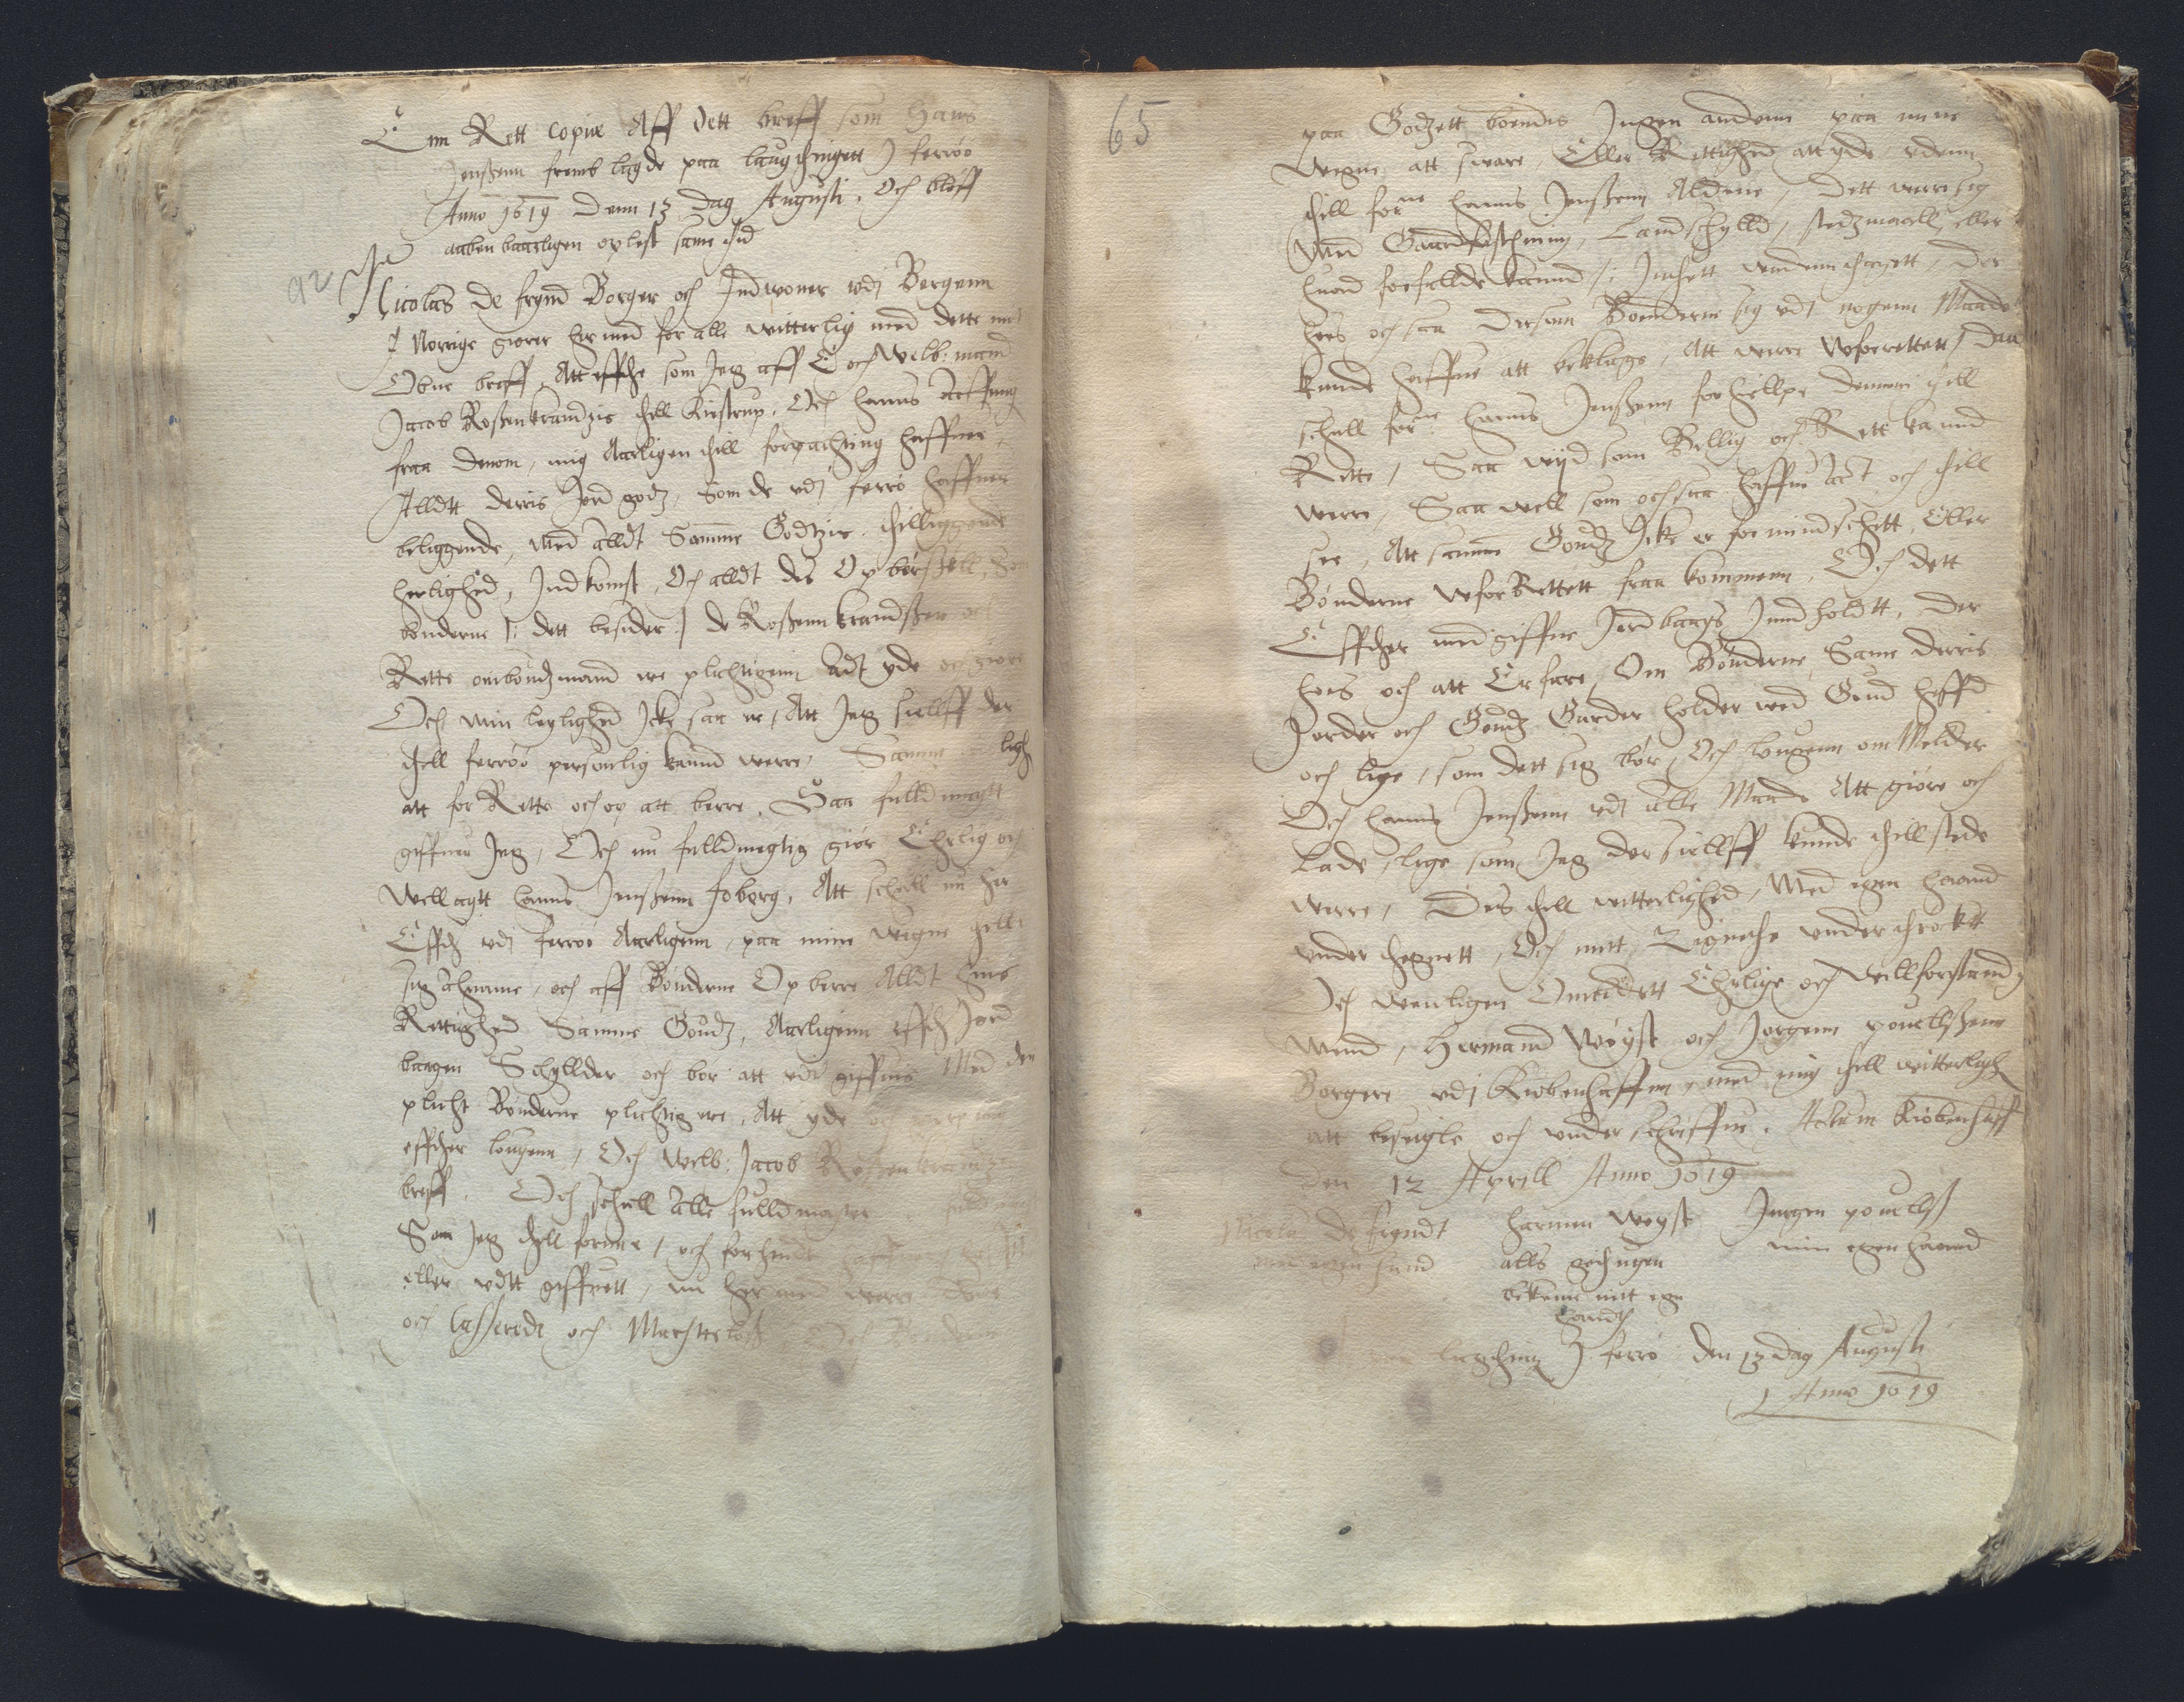 Enn Rett copie Aff dett breff som Hans
Jenßenn fremb lagde paa laugthingett J ferröö
Anno 1619 Denn 13 Dag Augusti. Och bleff
aabenbaarligen oplest same tid
92
Nicolas de frynd Borger och Indwoner wdj Bergenn
J Norrige giører her med for alle witterlig med dette mit
Obne breff, Att effther som Jeg aff E och Welb: mand
Jacob Roßenkrandzis thill Kiestrup, Och hanns
fraa denom, mig Aarligen thill forpachtning haffuer,
Alldtt derris Jord godz, som de wdj ferrö haffuer
beliggende, med alldt Samme Godtzis thilliggende
herlighed, Indkomst, Och alldt des Opbørßell, som
bønderne /: dett besider :/ de Roßennkrandßer och
Rette ombondzmand ere plichtigenn Adt yde och giøre
Och min leylighed Icke saa er, Att Jeg siellff der
thill ferröö personlig kannd werre, Samme
ligh
att for Rette och op att berre. Saa fulldmagtt
giffuer Jeg, Och nu fulldmegtig giør Ehrlig och
Wellagtt Hanns Jenßenn foborg, Att schall nu her
Effth wdj ferröö Aarligenn, paa mine wegne thill
sig Annamme, och aff Bønderne Opberre Alldt hues
Rettighed Samme Goudz, Aarligenn effth Jord
baagen Schyllder och bør att wdi giffues Med den
plicht Bønderne plichtig ere, Att yde och
effther lougenn, Och Welb: Jacob Roßenkrandz
breff. Och schall alle fulldmagter
Som Jeg thill forne, och forhend
eller wdtt giffuett, nu her med werre døde
och Casserede och Machteløß Och Bønderne
65
paa Godzett boendis Ingen andenn paa mine
wegne att suare, Eller Rettighed att yde, vdenn
thill forne Hanns Jenßenn Allene, Dett werre sig
med Gaardfestning, Landschylld, stedzmaall, eller
huad forfallde kannd /: Inthett wndenn thagett, der
hos och saa dersom Bønderne sig vdj nogenn Maade
kunde haffue att beklage, Att werre Wforettett, daa
schall forne Hanns Jenßenn forhielpe dennem thill
Rette, Saa wijd som Billig och Rett kannd
werre, Saa well som och saa haffue Act och thill
see, Att samme Goudz Icke er formindschett, Eller
Bønderne wforRettett fraa kommenn, Och dett
Effther medgiffne Jordbaags Innholdtt, Der
hoes och att Erfare, Om Bønderne Same derris
Jorder och Goudz Garder holder ved Gud heffd
och lige, som dett sig bør, Och lougenn om Melder
Och Hanns Jenßenn vdj alle Maade Att giøre och
Lade, lige som Jeg der siellff kunde thill stede
werre, Des thill witterlighed, Med egen Haand
vnder thegnett, Och mitt Zignethe vnder throckt
Och wenligen Ombedett Ehrlige och wellforstandig
mend, Hermand Wøyst och Jørgenn pouellßenn
Borgere vdj Kiøbenhaffnn, med mig thill witterligh
att besegle och vnderschriffue. Actum Kiøbenhaff
den 12 Aprill Anno 1619
Nicolas de fryndt
med egen hand
harmen Woyst
alls gethugen
bekenne mit egn
handt
Jurgen pouelß
min egen haand
laugthing J ferrö den 13 dag Augusti
Anno 1619